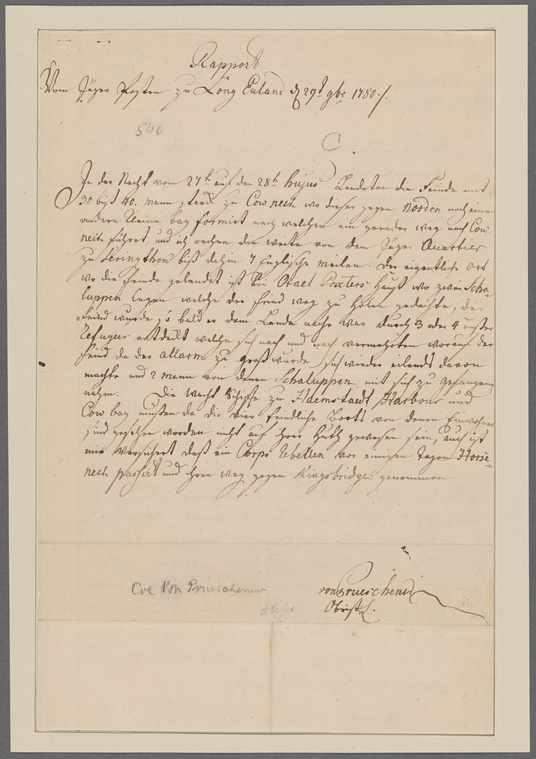 Rapport
Vom Jäger Posten zu Long Euland d 29t 9br 1780 /.
540
C.
In der Nacht vom 27t auf den 28t hujus Landeten die Feinde mit
30 biß 40. mann, starck zu Cow neck wo dieser gegen Norden noch eine
andere kleine bay formirt nach welcher ein gerader weg nach Cow
neck führet, und ich rechne die weite von dem Jäger Quartier
zu biß dahin 7 Englische meilen, der eigentliche ort
wo die Feinde gelandet ist bei Obael Baxters Hauß wo zwei Scha-
luppen lagen welche der Feind weg zu holen gedachte, der
Feind wurde so bald er dem Lande nahe war durch 3 oder 4
Refugees entdeckt welche sich nach und nach vermehrten worauf der
Feind da der allarm zu groß wurde sich wieder eilends davon
machte und 2 mann von denen Schaluppen mit sich zu gefangen
nahm. Die wacht Schiffe zu Hemstaedt Harbour und
Cow bay müssen da die vier feindliche Boots von denen Einwohner
sind gesehen worden nicht auf ihrer Huth gewesen sein, auch ist
mir versichert daß ein Corps Rebellen vor einigen tagen Horse-
neck passirt und ihren weg gegen Kingsbridge genommen
von Prueschenck
Obrist L.
Col Von Prueschener